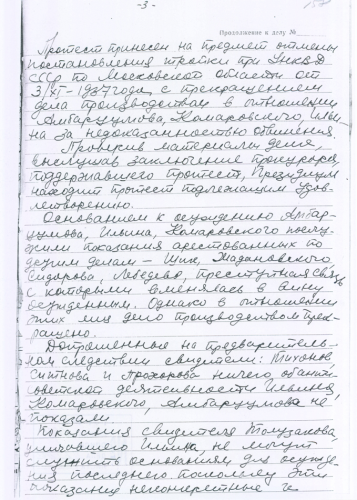 - 3 -
Продолжение к делу №
Протест принесен на предмет отмены
постановления тройки при УНКВД
СССР по Московской области от
3/XI-1937 года, с прекращением
дела производством в отношении
Амбарцумова, Комаровского, Ильи-
на за недоказанностью обвинения.
Проверив материалы дела,
выслушав заключение прокурора,
поддержавшего протест, Президиум
находит протест подлежащим удов-
летворению.
Основанием к осуждению Амбар-
цумова, Ильина, Комаровского послу-
жили показания арестованных по
другим делам —
Сидорова, Лебедева, преступная связь
с которыми вменялась в вину
осужденным. Однако в отношении
этих лиц дело производством прек-
ращено.
Допрошенные на предваритель-
ном следствии свидетели: Тихонов
и Прохорова ничего об анти-
советской деятельности Ильина,
Комаровского, Амбарцумова не
показали.
Показания свидетеля
уличавшего Ильина, не могут
служить основанием для осужде-
ния последнего поскольку эти
показания неконкретные и